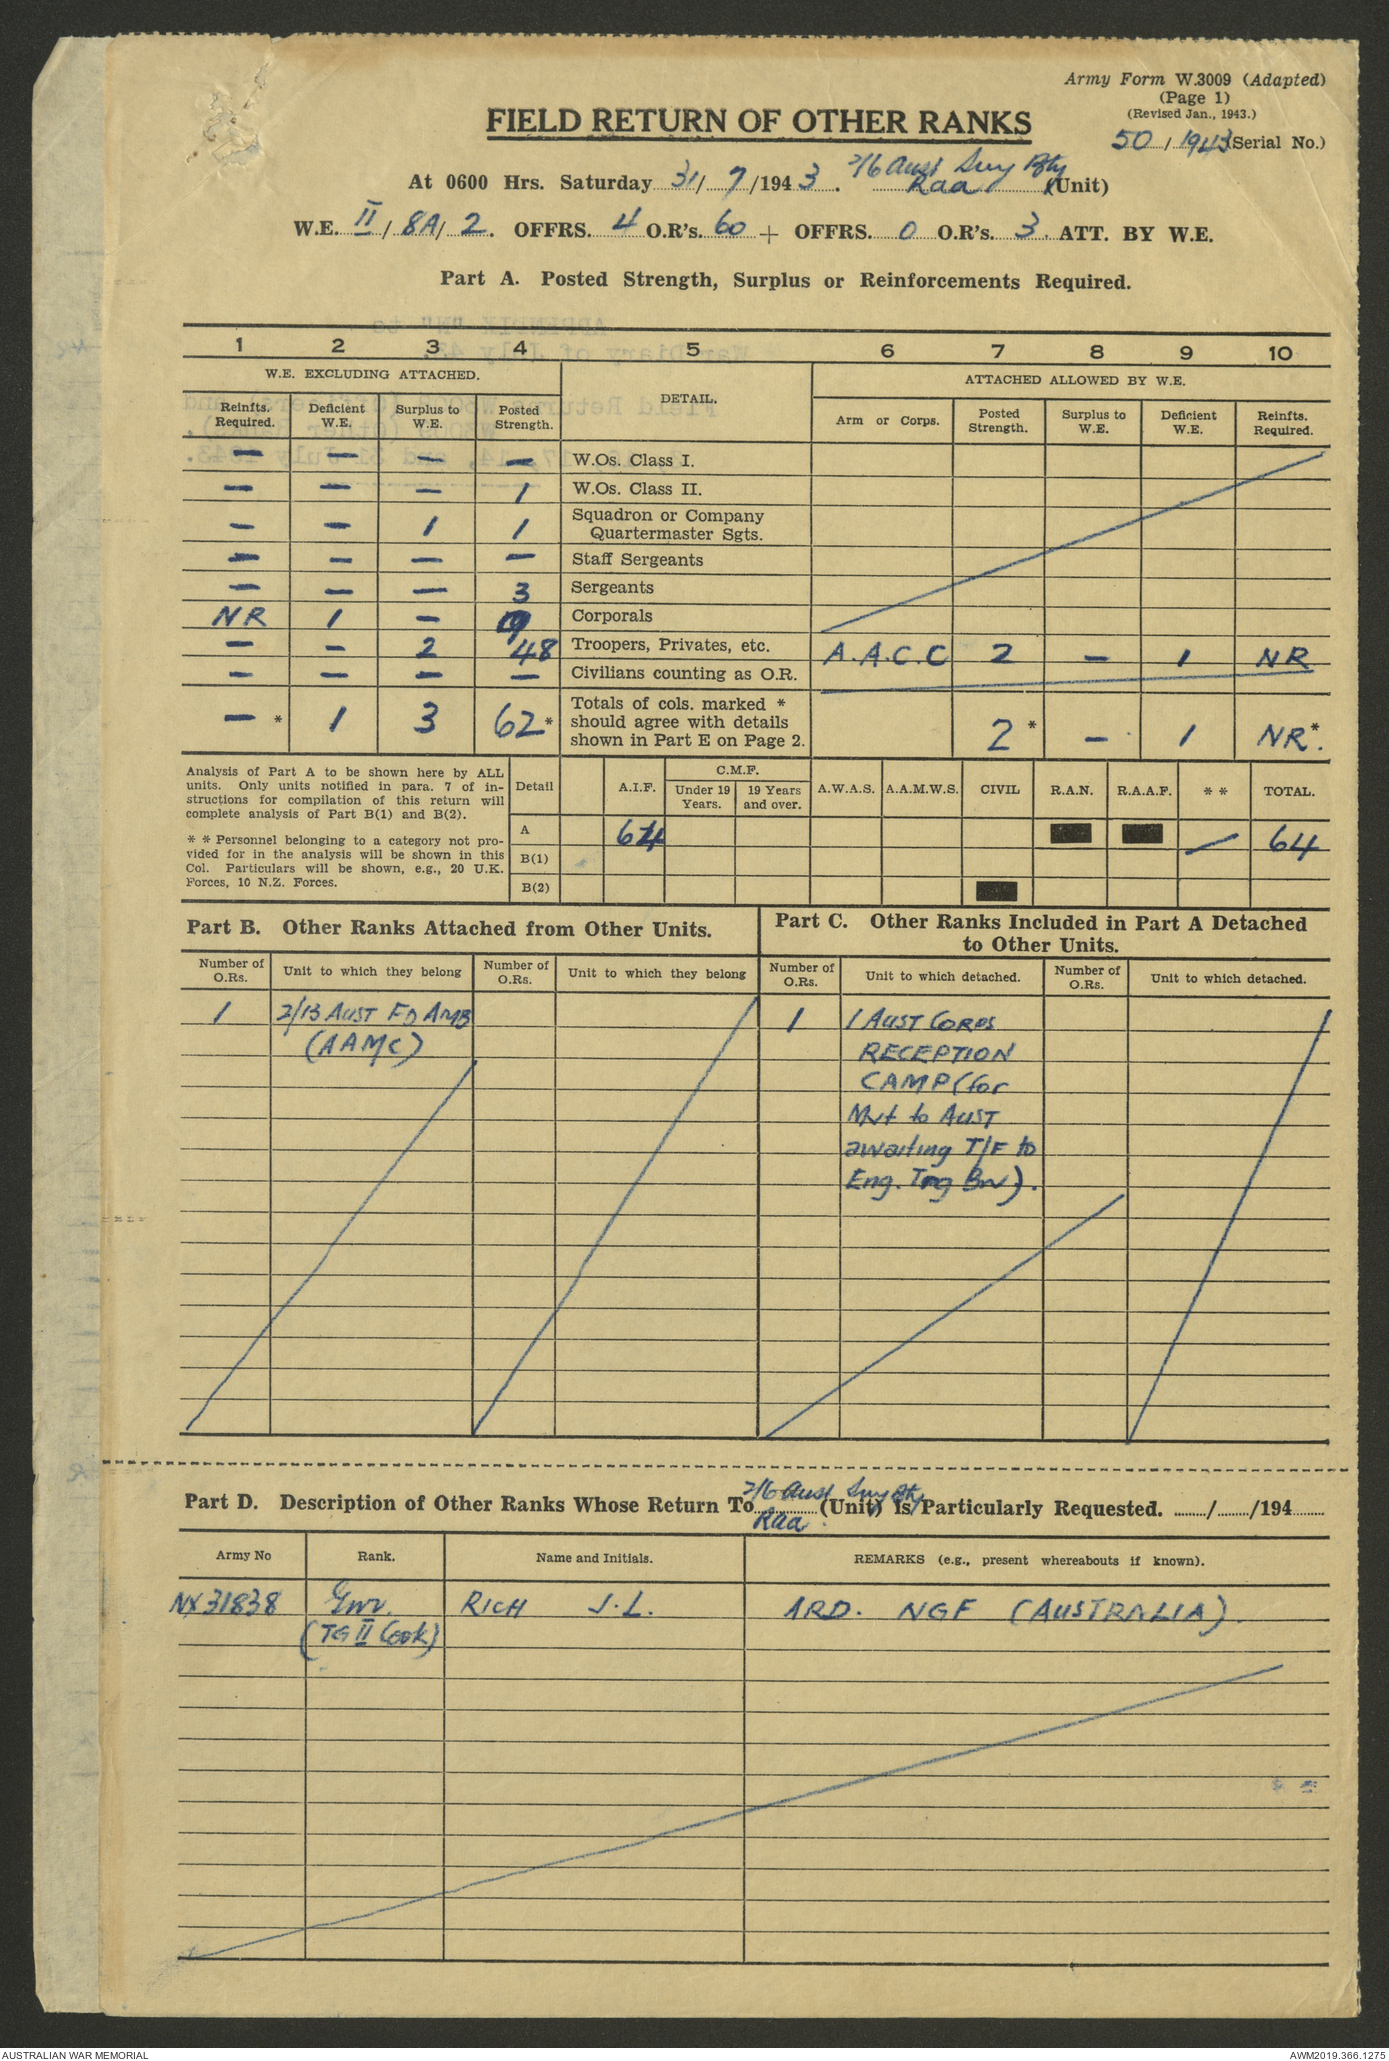 Army Form W.3009 (Adapted)
(Page 1)
(Revised Jan., 1943.)
50/1943 (Serial No.)
FIELD RETURN OF OTHER RANKS
At 0600 Hrs. Saturday 31/7/1943. 2/6 Aust Svy Bty RAA (Unit)
W.E. II/8A/2. OFFRS. 4 O.R's. 60 + OFFRS. 0 O.R's. 3. ATT. BY W.E.
Part A. Posted Strength, Surplus or Reinforcements Required.
1 2 3 4 5 6 7 8 9 10
W.E. EXCLUDING ATTACHED. DETAIL. ATTACHED ALLOWED BY W.E.
Reinfts. Required. Deficient W.E. Surplus to W.E. Posted Strength. Arm or Corps. Posted Strength. Surplus to W.E. Deficient W.E. Reinfts. Required.
— — — — W.Os. Class I.
— — — 1 W.Os. Class II.
— — 1 1 Squadron or Company Quartermaster Sgts.
— — — — Staff Sergeants
— — — 3 Sergeants
NR 1 — 9 Corporals
— — 2 48 Troopers, Privates, etc. A.A.C.C 2 — 1 NR
— — — — Civilians counting as O.R.
— * 1 3 62* Totals of cols. marked * should agree with details shown in Part E on Page 2. 2 * — 1 NR*.
Analysis of Part A to be shown here by ALL
units. Only units notified in para. 7 of in-
structions for compilation of this return will
complete analysis of Part B(1) and B(2).
* * Personnel belonging to a category not pro-
vided for in the analysis will be shown in this
Col. Particulars will be shown, e.g., 20 U.K.
Forces, 10 N.Z. Forces.
Detail A.I.F. C.M.F. Under 19 Years. 19 Years and over. A.W.A.S. A.A.M.W.S. CIVIL R.A.N. R.A.A.F. * * TOTAL.
A 64 — 64
B(1)
B(2)
Part B. Other Ranks Attached from Other Units.
Number of O.Rs. Unit to which they belong Number of O.Rs. Unit to which they belong
1 2/13 AUST FD AMB
(AAMC)
Part C. Other Ranks Included in Part A Detached
to Other Units.
Number of O.Rs. Unit to which detached. Number of O.Rs. Unit to which detached.
1 1 AUST CORPS
RECEPTION
CAMP (for
Mvt to AUST
awaiting T/F to
Eng. Trg Bn).
Part D. Description of Other Ranks Whose Return To 2/6 Aust Svy Bty RAA (Unit) is Particularly Requested. ....../....../194......
Army No Rank. Name and Initials. REMARKS (e.g., present whereabouts if known).
NX31838 Gnr. RICH J.L. ARD. NGF (AUSTRALIA).
(TG II Cook)
AUSTRALIAN WAR MEMORIAL
AWM2019.366.1275